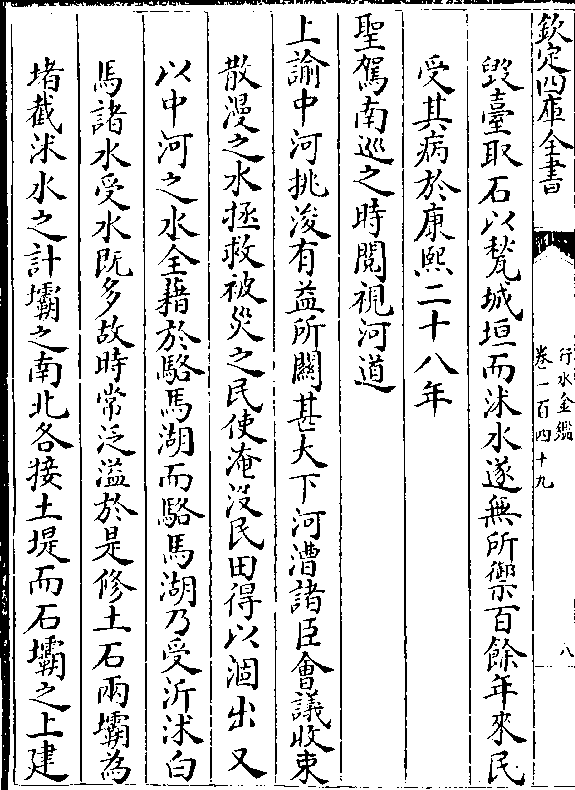 欽定四庫全書
行水金鑑
卷一百四十九
八
毀臺取石以甃城垣而沭水遂無所禦百餘年來民
受其病於康熙二十八年
聖駕南巡之時閱視河道
上諭中河挑浚有益所關甚大下河漕諸臣會議收束
散漫之水拯救被災之民使淹沒民田得以涸出又
以中河之水全藉於駱馬湖而駱馬湖乃受沂沭白
馬諸水受水既多故時常泛溢於是修土石兩壩為
堵截沭水之計壩之南北各接土堤而石壩之上建